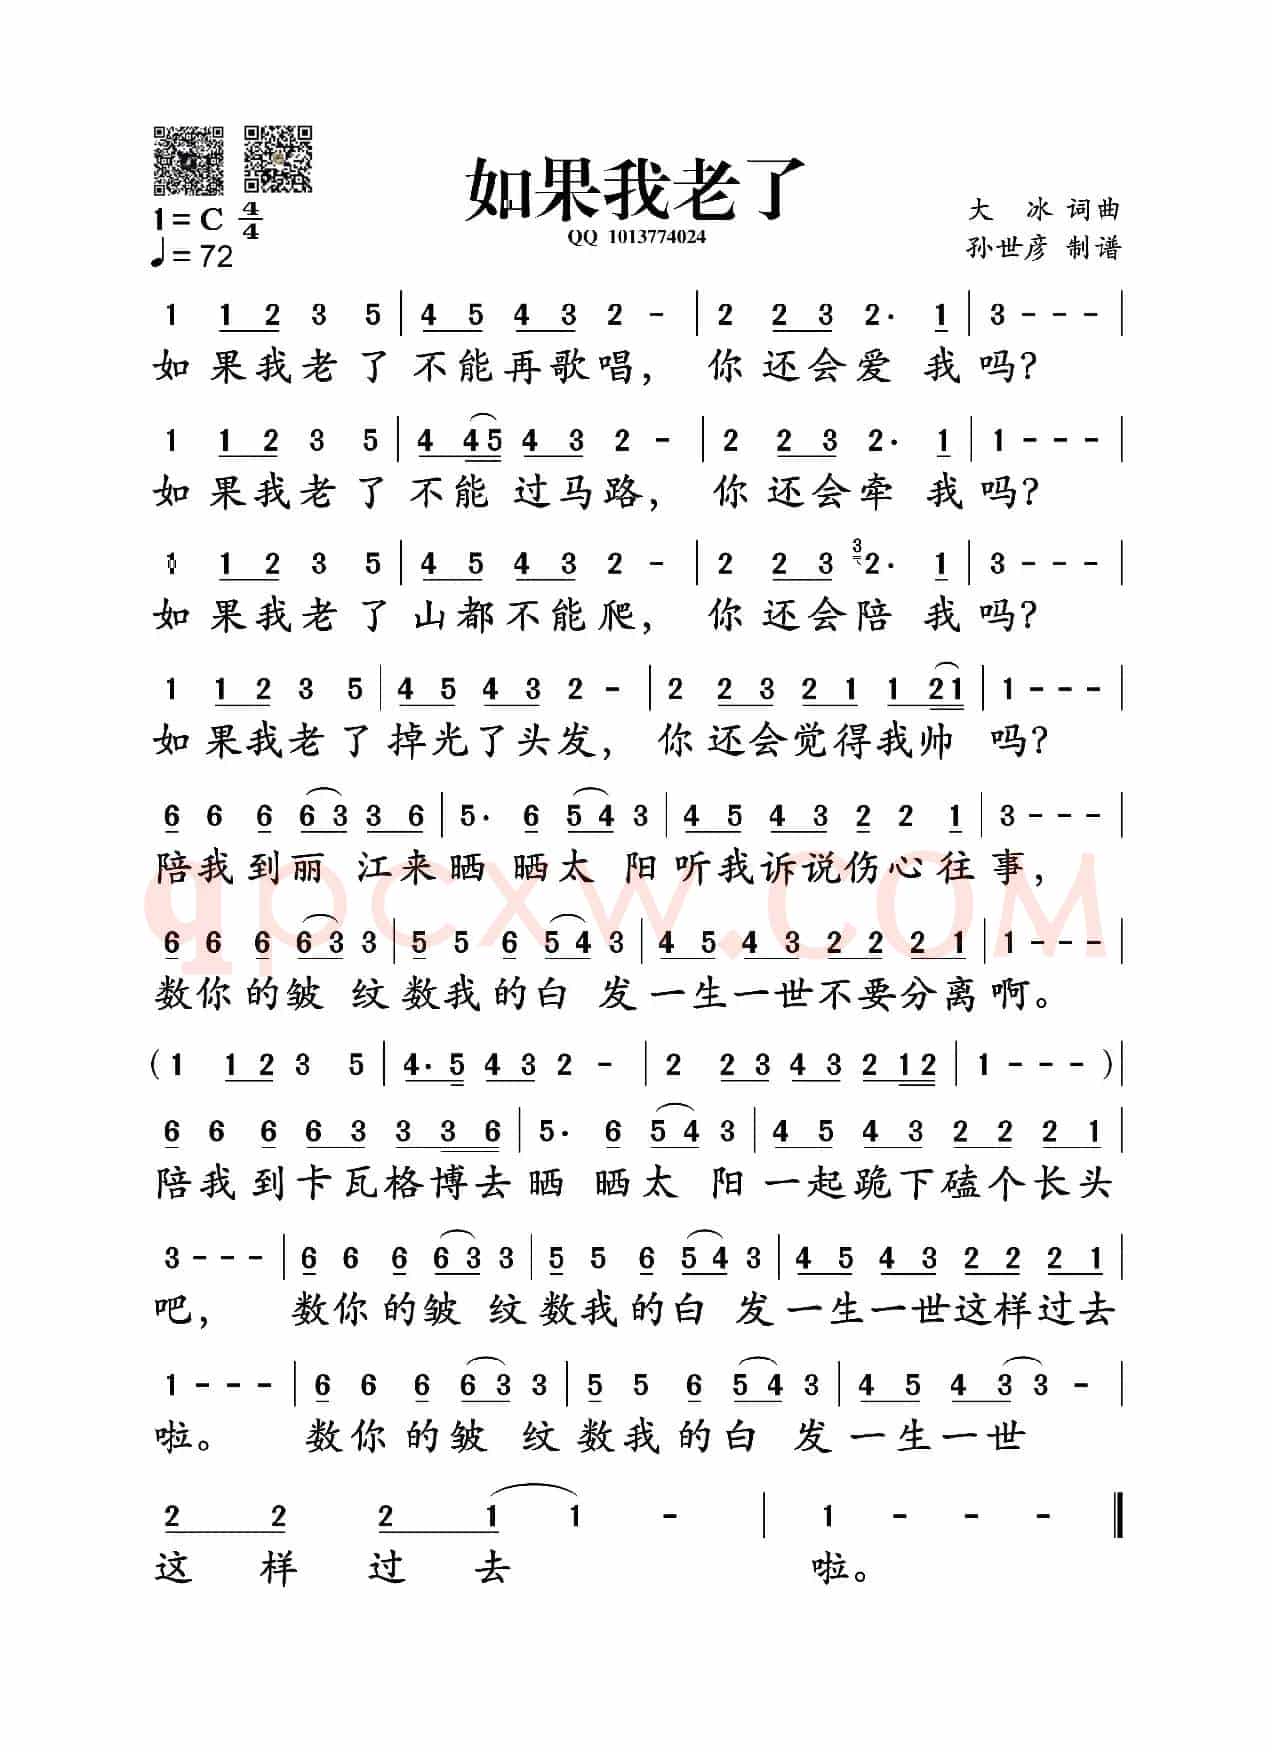 如果我老了
QQ 1013774024
1=C 4/4
♩=72
大 冰 词曲
孙世彦 制谱
1 1 2 3 5 | 4 5 4 3 2 - | 2 2 3 2· 1 | 3 - - - |
如果我老了不能再歌唱，你还会爱我吗?
1 1 2 3 5 | 4 4 5 4 3 2 - | 2 2 3 2· 1 | 1 - - - |
如果我老了不能过马路，你还会牵我吗?
1 1 2 3 5 | 4 5 4 3 2 - | 2 2 3 3 2· 1 | 3 - - - |
如果我老了山都不能爬，你还会陪我吗?
1 1 2 3 5 | 4 5 4 3 2 - | 2 2 3 2 1 1 2 1 | 1 - - - |
如果我老了掉光了头发，你还会觉得我帅吗?
6 6 6 6 3 3 6 | 5· 6 5 4 3 | 4 5 4 3 2 2 1 | 3 - - - |
陪我到丽江来晒晒太阳听我诉说伤心往事，
qpcxw.COM
6 6 6 6 3 3 | 5 5 6 5 4 3 | 4 5 4 3 2 2 2 1 | 1 - - - |
数你的皱纹数我的白发一生一世不要分离啊。
( 1 1 2 3 5 | 4· 5 4 3 2 - | 2 2 3 4 3 2 1 2 | 1 - - - ) |
6 6 6 6 3 3 3 6 | 5· 6 5 4 3 | 4 5 4 3 2 2 2 1 |
陪我到卡瓦格博去晒晒太阳一起跪下磕个长头
3 - - - | 6 6 6 6 3 3 | 5 5 6 5 4 3 | 4 5 4 3 2 2 2 1 |
吧，数你的皱纹数我的白发一生一世这样过去
1 - - - | 6 6 6 6 3 3 | 5 5 6 5 4 3 | 4 5 4 3 3 - |
啦。数你的皱纹数我的白发一生一世
2 2 2 1 1 - | 1 - - - ‖
这样过去啦。